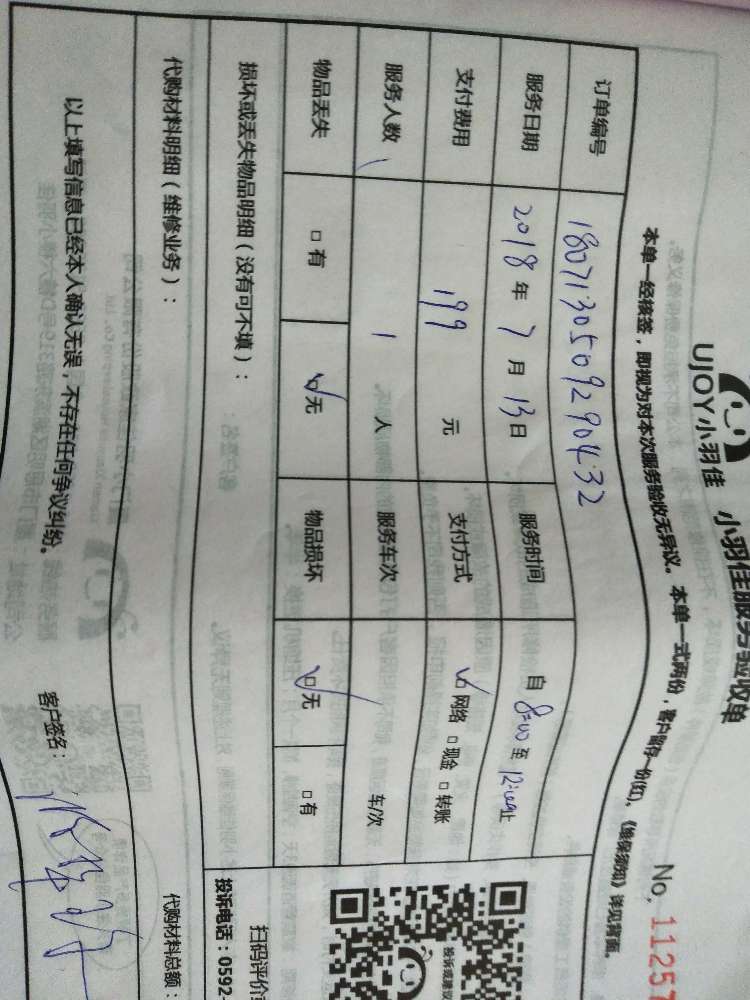 UJOY小羽佳 小羽佳服务验收单
No. 11257
本单一经核签，即视为对本次服务验收无异议。本单一式两份，客户留存一份(红)，《维保须知》详见背面。
订单编号 1807130509290432
服务日期 2018年7月13日 服务时间 自8:00至12:00止
支付费用 199元 支付方式 ☑网络 □现金 □转账
服务人数 1人 服务车次 车/次
物品丢失 □有 ☑无 物品损坏 ☑无 □有
损坏或丢失物品明细（没有可不填）：
代购材料明细（维修业务）： 代购材料总额：
以上填写信息已经本人确认无误，不存在任何争议纠纷。 客户签名：
投诉或建议
扫码评价
投诉电话：0592-